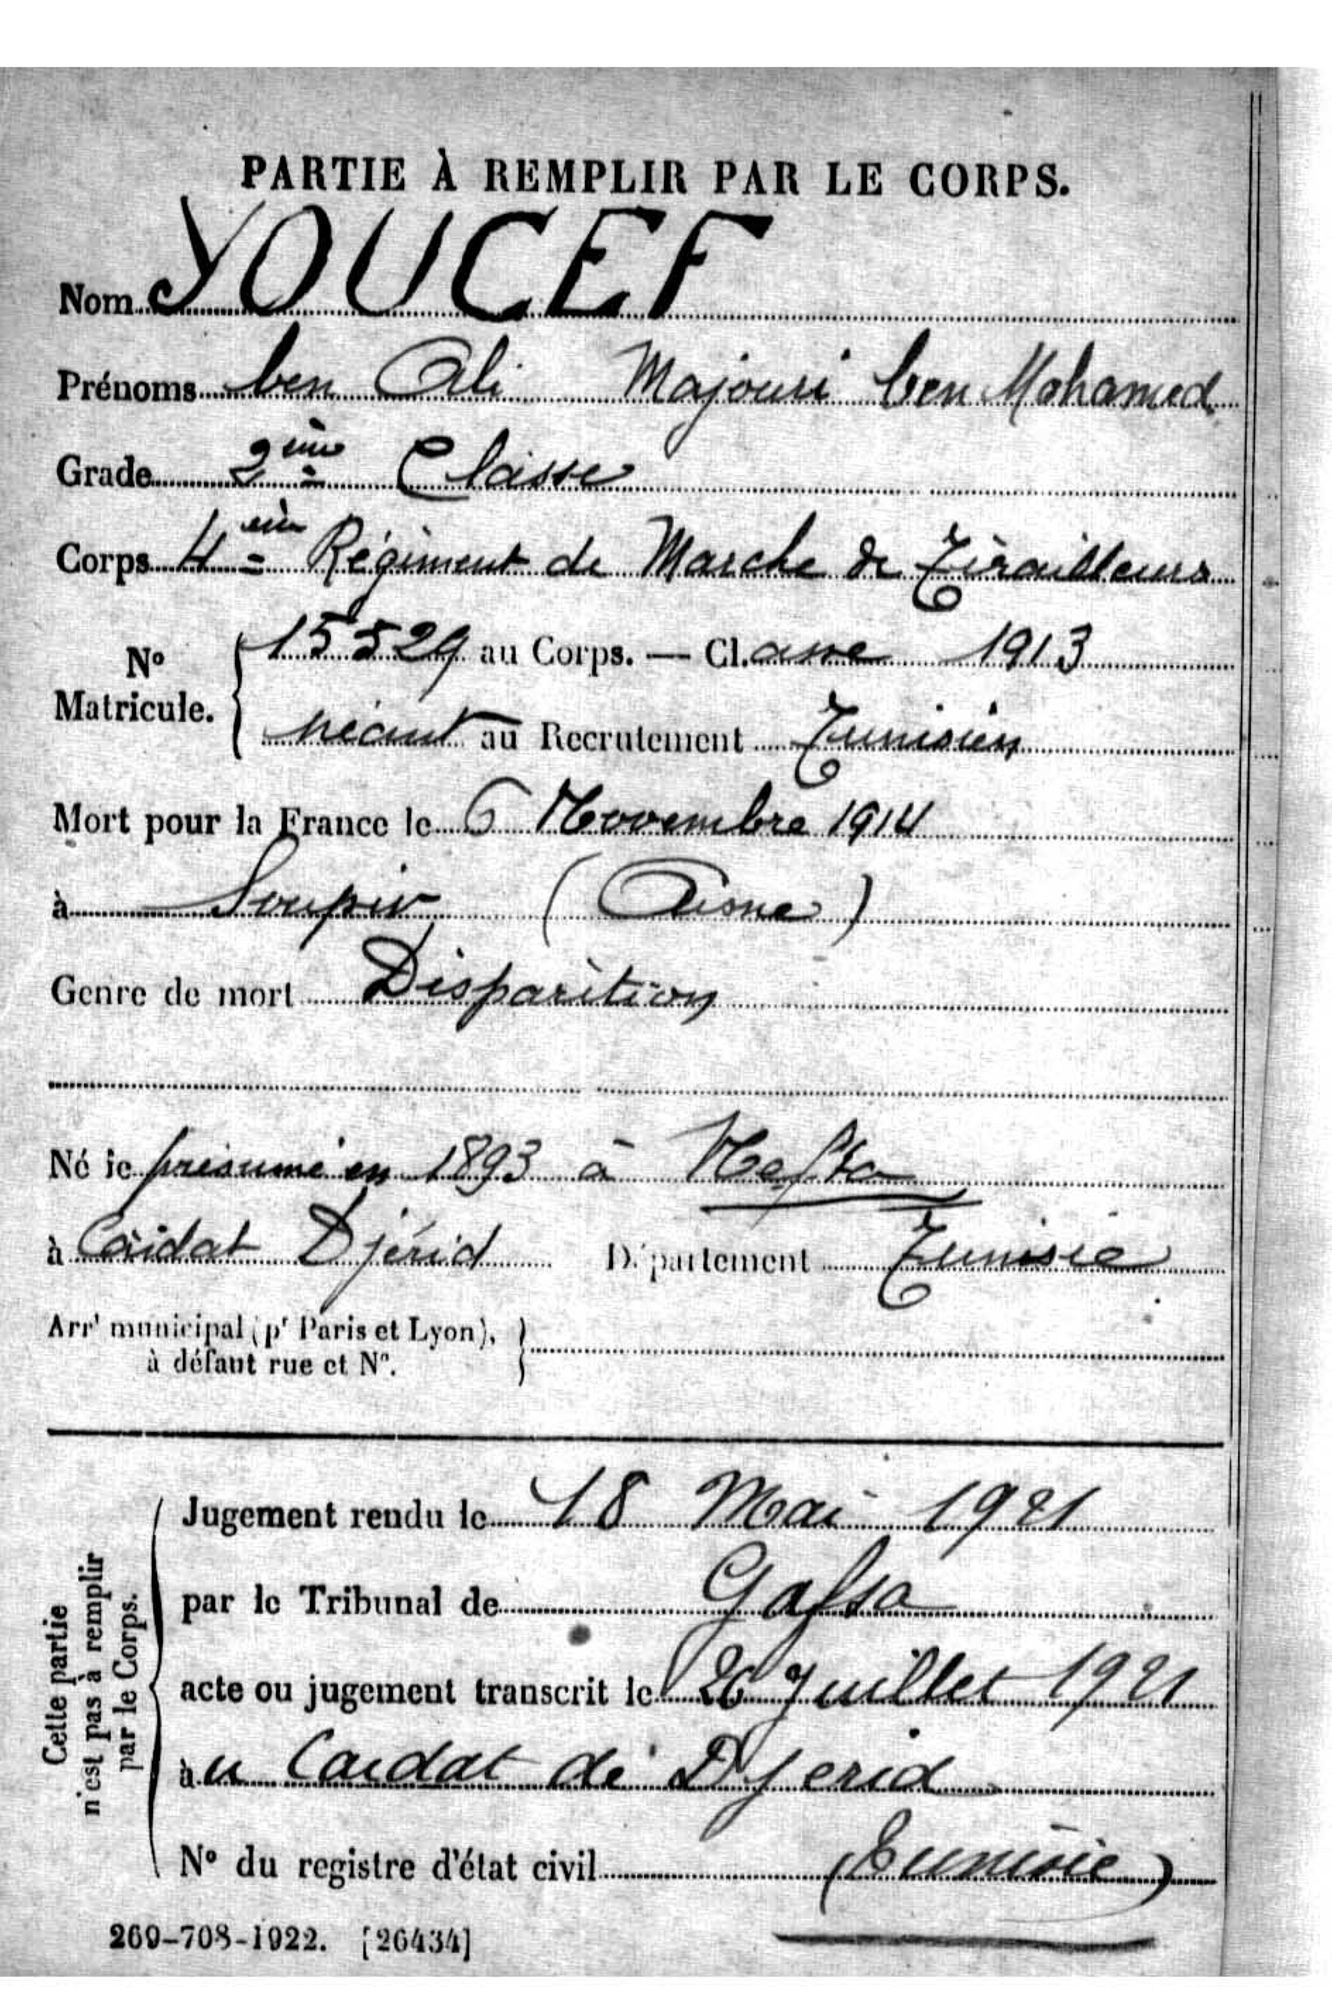 PARTIE À REMPLIR PAR LE CORPS.
Nom YOUCEF
Prénoms ben Ali Majouri ben Mohamed
Grade 2ème Classe
Corps 4ème Régiment de Marche de Tirailleurs
N° Matricule. { 15529 au Corps. — Cl.asse 1913
néant au Recrutement Tunisien
Mort pour la France le 6 Novembre 1914
à Soupir (Aisne)
Genre de mort Disparition
Né le présumé en 1893 à Nefta
à Caïdat Djérid Département Tunisie
Arrt municipal (pr Paris et Lyon),
à défaut rue et N°.
Cette partie
n'est pas à remplir
par le Corps.
Jugement rendu le 18 Mai 1921
par le Tribunal de Gafsa
acte ou jugement transcrit le 26 Juillet 1921
àu Caïdat de Djerid
N° du registre d'état civil (Tunisie)
269-708-1922. [26434]